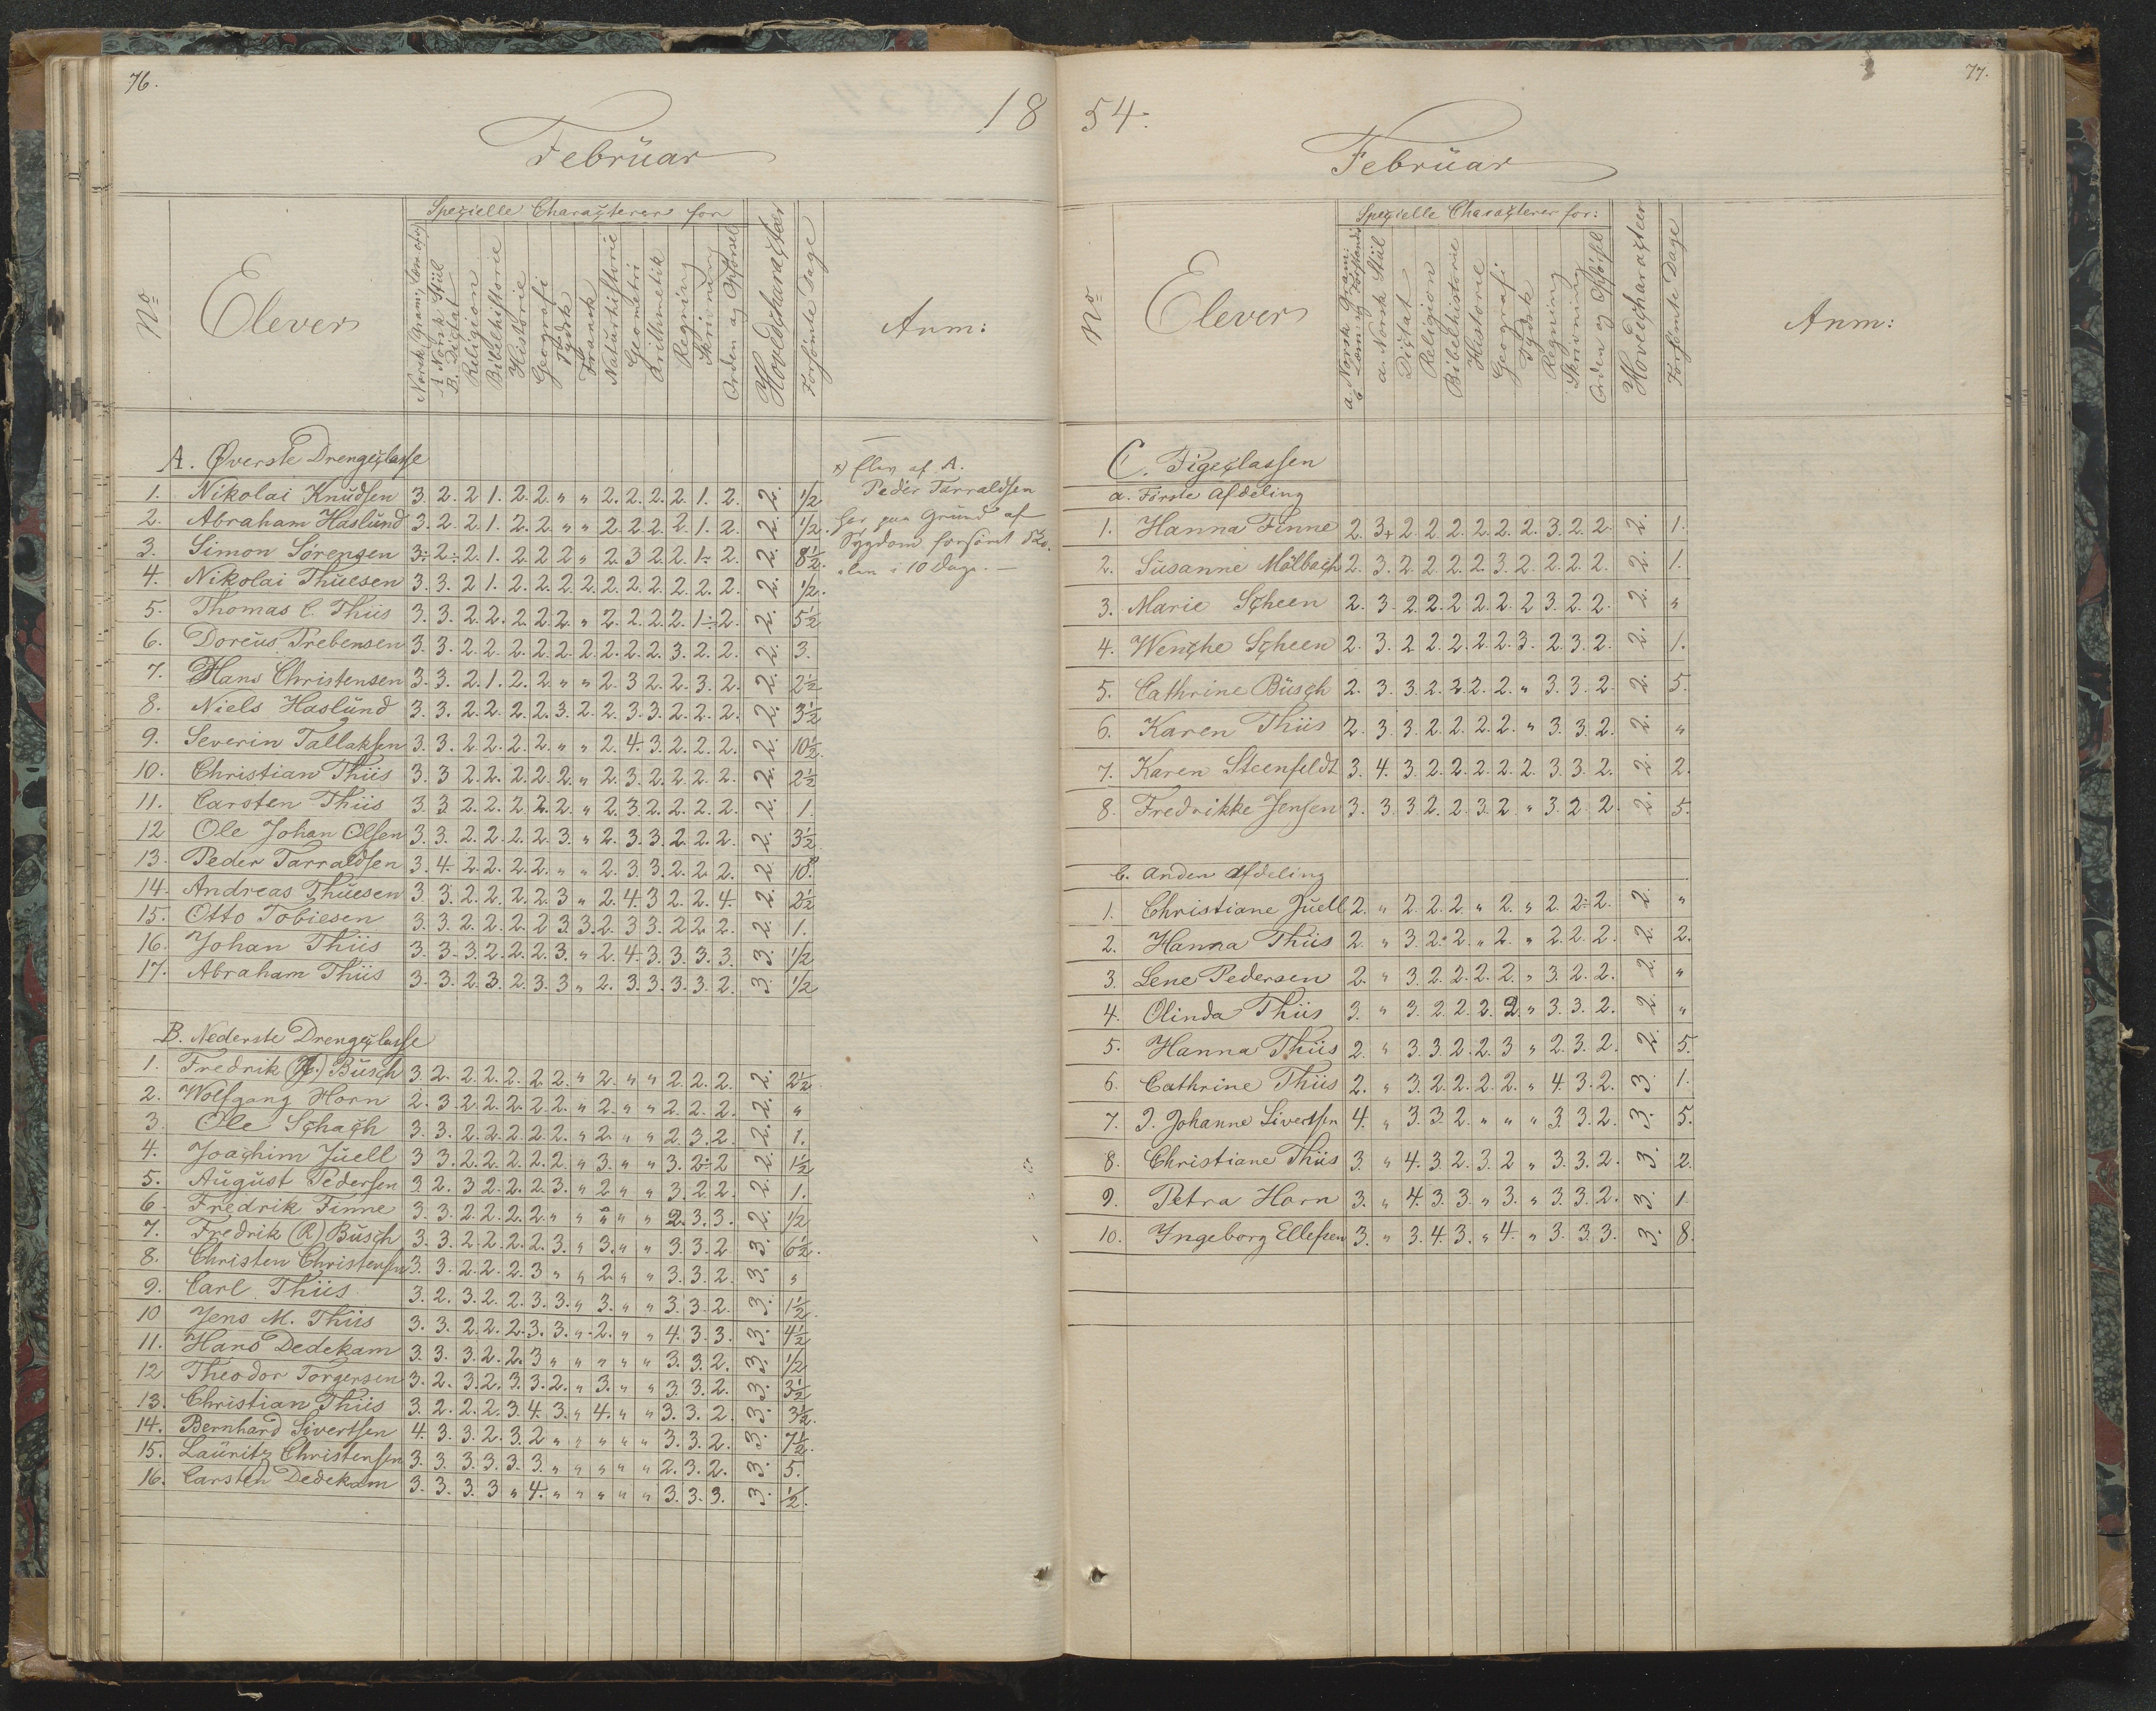 76.
18
Februar
Specielle Characterer for
No
Elever
Norsk Gram: Læsn. ofv
A Norsk Stiil
B. Dictat
Religion
Bibelhistorie
Historie
Geografi
Tydsk
Fransk
Naturhistorie
Geometri
Arithmetik
Regning
Skrivning
Orden og Opførsel
Hovedcharacteer
Forsømte Dage
Anm:
A. Øverste Drengeclasse
1. Nikolai Knudsen 3. 2. 2 1. 2. 2. " " 2. 2. 2. 2 1. 2. 2. 1/2
2. Abraham Haslund 3. 2. 2. 1. 2. 2 " " 2. 2. 2. 2. 1. 2. 2. 1/2.
3. Simon Sørensen 3÷ 2÷ 2. 1. 2. 2 2 " 2. 3 2. 2 1÷ 2. 2. 8 1/2.
4. Nikolai Thuesen 3. 3. 2 1. 2. 2. 2. 2. 2. 2. 2. 2. 2. 2. 2. 1/2.
5. Thomas C. Thiis 3. 3. 2. 2. 2. 2. 2. " 2. 2. 2. 2. 1÷ 2. 2. 5 1/2
6. Doreus Prebensen 3. 3. 2. 2. 2. 2. 2. 2. 2. 2. 2. 3. 2. 2. 2. 3.
7. Hans Christensen 3. 3. 2. 1. 2. 2 " " 2. 3 2. 2. 3. 2. 2. 2 1/2
8. Niels Haslund 3. 3. 2. 2. 2. 2. 3. 2. 2. 3. 3. 2. 2. 2. 2. 3 1/2
9. Severin Tallaksen 3. 3. 2. 2. 2. 2. " " 2. 4. 3. 2. 2. 2. 2. 10 1/2.
10. Christian Thiis 3. 3 2. 2. 2. 2. 2. " 2. 3. 2. 2. 2. 2. 2. 2 1/2
11. Carsten Thiis 3. 3. 2. 2. 2 2. 2. " 2. 3. 2. 2. 2. 2. 2. 1.
12 Ole Johan Olsen 3. 3. 2. 2. 2. 2. 3. " 2. 3. 3. 2. 2. 2. 2. 3 1/2
13. Peder Tarraldsen 3. 4. 2. 2. 2. 2. " " 2. 3. 3. 2. 2. 2. 2. 10.
14. Andreas Thuesen 3 3. 2. 2. 2. 2. 3 " 2. 4. 3 2. 2. 4. 2. 2 1/2
15. Otto Tobiesen 3. 3. 2. 2. 2. 2 3. 3. 2 3 3. 2 2 2. 2. 1.
16. Johan Thiis 3. 3. 3. 2. 2. 2. 3. " 2. 4. 3. 3. 3. 3. 3. 1/2
17. Abraham Thiis 3. 3. 2. 3. 2. 3. 3 " 2. 3. 3. 3. 3. 2. 3. 1/2
x) Elev af A.
Peder Tarraldsen
har paa Grund af
Sygdom forsømt Sko-
len i 10 Dage. —
B. Nederste Drengeclasse
1. Fredrik Busch 3. 2. 2. 2. 2. 2. 2. " 2. " " 2. 2. 2. 2. 2 1/2.
2. Wolfgang Horn 2. 3. 2. 2. 2. 2. 2. " 2. " " 2. 2. 2. 2. "
3. Ole Schach 3. 3. 2. 2. 2. 2. 2. " 2. " " 2. 3. 2. 2. 1.
4. Joachim Juell 3 3. 2. 2. 2. 2. 2. " 3. " " 3. 2÷ 2 2. 1 1/2
5. August Pedersen 3. 2. 3 2. 2. 2. 3. " 2 " " 3. 2. 2. 2. 1.
6 Fredrik Finne 3. 3. 2. 2. 2. 2. " " " " " 2. 3. 3. 2. 1/2
7. Fredrik (R) Busch 3. 3. 2. 2. 2. 2. 3. " 3. " " 3. 3. 2 3. 6 1/2.
8. Christen Christensen 3. 3. 2. 2. 2. 3 " " 2. " " 3. 3. 2. 3. "
9. Carl Thiis 3. 2. 3. 2. 2. 3. 3. " 3. " " 3. 3. 2. 3. 1 1/2.
10 Jens M. Thiis 3. 3. 2. 2. 2. 3. 3. " 2. " " 4. 3. 3. 3. 4 1/2
11. Hans Dedekam 3. 3. 3. 2. 2. 3 " " " " " 3. 3. 2. 3. 1/2
12 Theodor Torgersen 3. 2. 3. 2. 3. 3. 2. " 3. " " 3 3. 2. 3. 3 1/2
13. Christian Thiis 3. 2. 2. 2. 3. 4. 3. " 4. " " 3. 3. 2. 3. 3 1/2.
14. Bernhard Sivertsen 4. 3. 3. 2. 3. 2 " " " " " 3. 3. 2. 3. 7 1/2.
15. Lauritz Christensen 3. 3. 3. 3. 3. 3. " " " " " 2. 3. 2. 3. 5.
16. Carsten Dedekam 3. 3. 3. 3 " 4. " " " " " 3. 3. 3. 3. 1/2.
77.
54.
Februar
Specielle Characterer for:
No
Elever
a. Norsk Gram:
b Læsn og Forstands
a. Norsk Stiil
Dictat
Religion
Bibelhistorie
Historie
Geografi
Tydsk
Regning
Skrivning
Orden og Opførsel
Hovedcharacteer
Forsømte Dage
Anm:
C. Pigeclassen
a. Første Afdeling
1. Hanna Finne 2. 3+ 2. 2. 2. 2. 2. 2. 3. 2. 2. 2. 1.
2. Susanne Mölbach 2. 3. 2. 2. 2. 2. 3. 2. 2. 2. 2. 2. 1.
3. Marie Scheen 2. 3. 2. 2. 2. 2. 2. 2 3. 2. 2. 2. "
4. Wenche Scheen 2. 3. 2. 2. 2. 2. 2. 3. 2. 3. 2. 2. 1.
5. Cathrine Busch 2. 3. 3. 2. 2. 2. 2. " 3. 3. 2. 2. 5.
6. Karen Thiis 2. 3. 3. 2. 2. 2. 2. " 3. 3. 2. 2. "
7. Karen Steenfeldt 3. 4. 3. 2. 2. 2. 2. 2. 3. 3. 2. 2. 2.
8. Fredrikke Jensen 3. 3. 3. 2. 2. 3. 2 " 3. 2. 2. 2. 5.
b. Anden Afdeling
1. Christiane Juell 2. " 2. 2. 2. " 2. " 2. 2÷ 2. 2. "
2. Hanna Thiis 2. " 3. 2. 2. " 2. " 2. 2. 2. 2. 2.
3. Lene Pedersen 2. " 3. 2. 2. 2. 2. " 3. 2. 2. 2. "
4. Olinda Thiis 3. " 3. 2. 2. 2. 2. " 3. 3. 2. 2. "
5. Hanna Thiis 2. " 3. 3. 2. 2. 3 " 2. 3. 2. 2. 5.
6. Cathrine Thiis 2. " 3. 2. 2. 2. 2. " 4. 3. 2. 3. 1.
7. J. Johanne Sivertsen 4. " 3. 3. 2. " " " 3. 3. 2. 3. 5.
8. Christiane Thiis 3. " 4. 3. 2. 3. 2 " 3. 3. 2. 3. 2.
9. Petra Horn 3. " 4. 3. 3. " 3. " 3. 3. 2. 3. 1
10. Ingeborg Ellefsen 3. " 3. 4. 3. " 4. " 3. 3. 3. 3. 8.